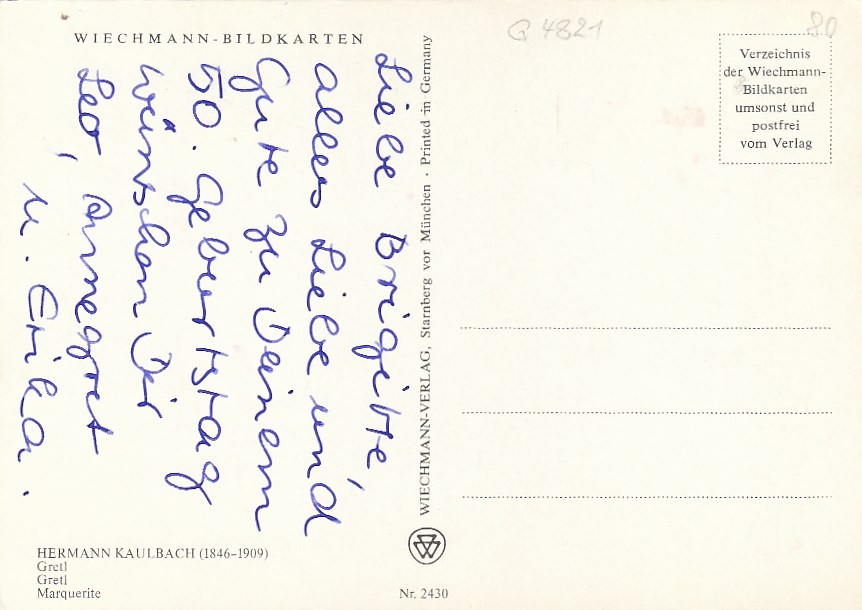 WIECHMANN-BILDKARTEN
Liebe Brigitte,
alles Liebe und
Gute zu Deinem
50. Geburtstag
wünschen Dir
Leo, Annegret
u. Erika.
HERMANN KAULBACH (1846–1909)
Gretl
Gretl
Marquerite
Nr. 2430
WIECHMANN-VERLAG, Starnberg vor München · Printed in Germany
G 4821
80
Verzeichnis
der Wiechmann-
Bildkarten
umsonst und
postfrei
vom Verlag